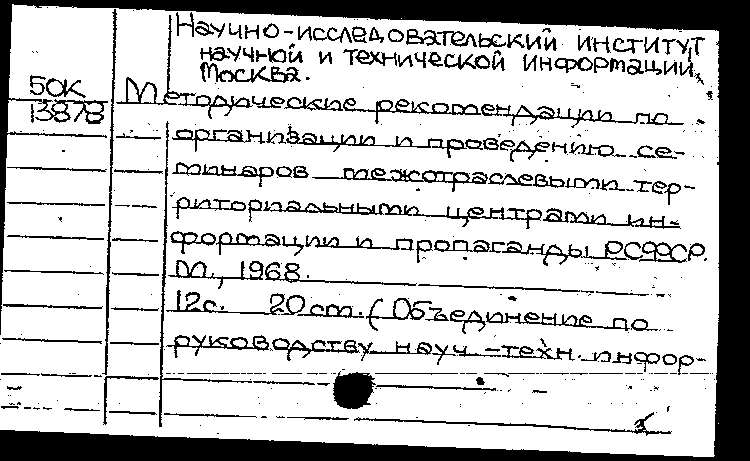 Научно-исследовательский институт
научной и технической информации,
Москва.
50К
13878
Методические рекомендации по
организации и проведению се-
минаров межотраслевыми тер-
риториальными центрами ин-
формации и пропаганды РСФСР.
М., 1968.
12с. 20 cm. (Объединение по
руководству науч.-техн. инфор-